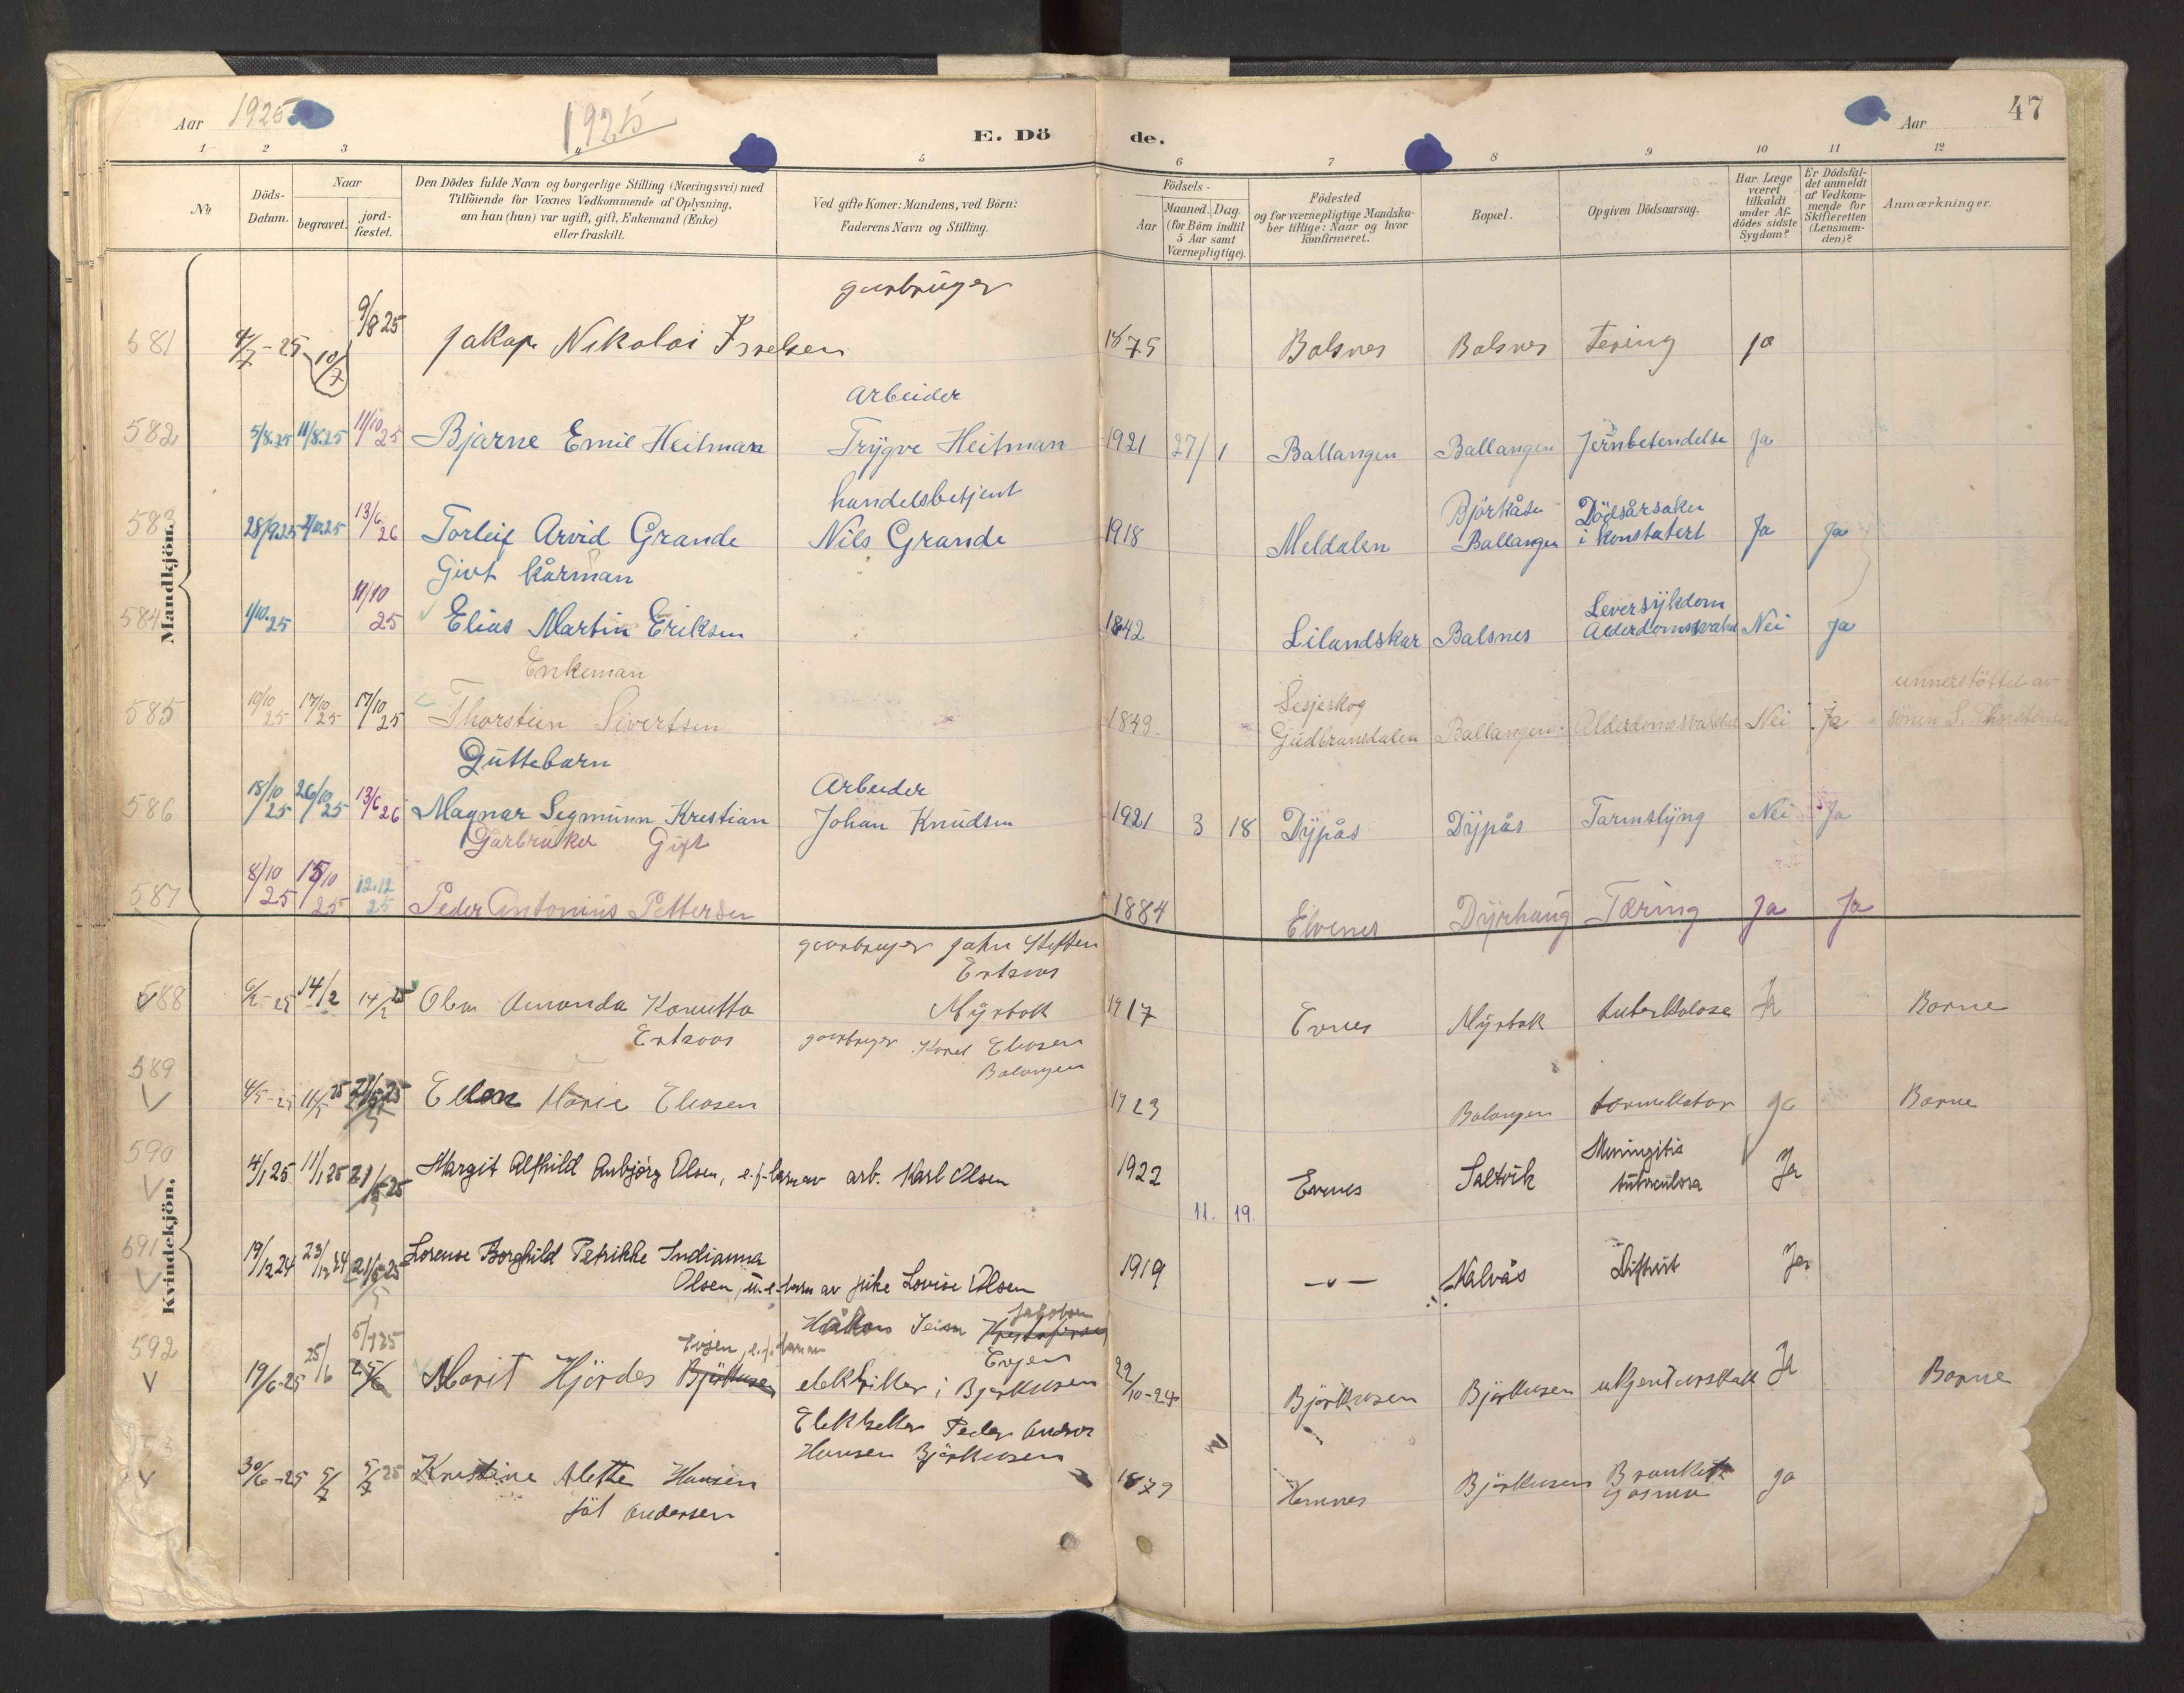 Aar 1925 1925 E. Dö de. Aar 47
1 2 3 4 5 6 7 8 9 10 11 12
No
Döds-
Datum.
Naar
begravet.
jord-
fæstet.
Den Dödes fulde Navn og borgerlige Stilling (Næringsvei) med
Tilföiende for Voxnes Vedkommende af Oplysning,
om han (hun) var ugift, gift, Enkemand (Enke)
eller fraskilt.
Ved gifte Koner: Mandens, ved Börn:
Faderens Navn og Stilling.
Födsels-
Aar
Maaned. Dag.
(for Börn indtil
5 Aar samt
Værnepligtige).
Födested
og for værnepligtige Mandska-
ber tillige: Naar og hvor
konfirmeret.
Bopæl.
Opgiven Dödsaarsag.
Har Læge
været
tilkaldt
under Af-
dödes sidste
Sygdom?
Er Dödsfal-
det anmeldt
af Vedkom-
mende for
Skifteretten
(Lensman-
den)?
Anmærkninger.
Mandkjön.
581 4/7-25 10/7 9/8 25 Jakop Nikolai 1875 Balsnes Balsnes tering ja
Arbeider
582 5/8.25 11/8.25 11/10 25 Bjarne Emil Heitman Trygve Heitman 1921 27/1 Ballangen Ballangen Ja
handelsbetjent
583 28/9.25 2/10.25 13/6 26 Torleif Arvid Grande Nils Grande 1918 Meldalen Björkåsen Ballangen Dödsårsaken i konstatert Ja Ja
Givt kårman
584 1/10.25 11/10 25 Elias Martin Eriksen 1842 Lilandskar Balsnes Leversykdom Nei Ja
Enkeman
585 10/10 25 17/10 25 17/10 25 Thorstein Sivertsen 1843 Lesjeskog Gudbransdalen Ballangen Nei Ja unnerstöttet av sönen S. Thorstensen
Guttebarn
586 18/10 25 26/10 25 13/6 26 Magnar Segmunn Kristian Arbeider Johan Knudsen 1921 3 18 Dypås Dypås Tarmslyng Nei Ja
Garbruker Gift
587 8/10 25 15/10 25 12.12 25 Peder Antonius Pettersen 1884 Elvenes Dyrhaug Tæring Ja Ja
Kvindekjön.
588 14/2 14/2 25 Amanda 1917 Evnes Ja Barne
589 4/5-25 11/5 25 Ellen Marie Eliasen 1923 Balangen ja Barne
590 4/1 25 11/1 25 21/5-25 Margit Alfhild Anbjörg Olsen, e.f. barn av arb. Karl Olsen 1922 11. 19. Evenes Saltvik Meningitis tuberculosa Ja
591 19/12 24 23/12 24 21/5-25 Lorense Borghild Petrikke Indianna
Olsen, u.e. barn av pike Lovise Olsen 1919 -"- Difterit Ja
592 19/6-25 25/6 5/7 25 Marit Hjördes Evjen, e.f. barn av Håkon Jakobsen Evjen
22/10-24 Björkaasen Björkaasen Ja Barne
30/6-25 5/7 5/7 25 Kristine Alette Hansen
föt Andersen
Peder Andreas
Hansen Björkaasen
1879 Hemnes Björkaasen ja